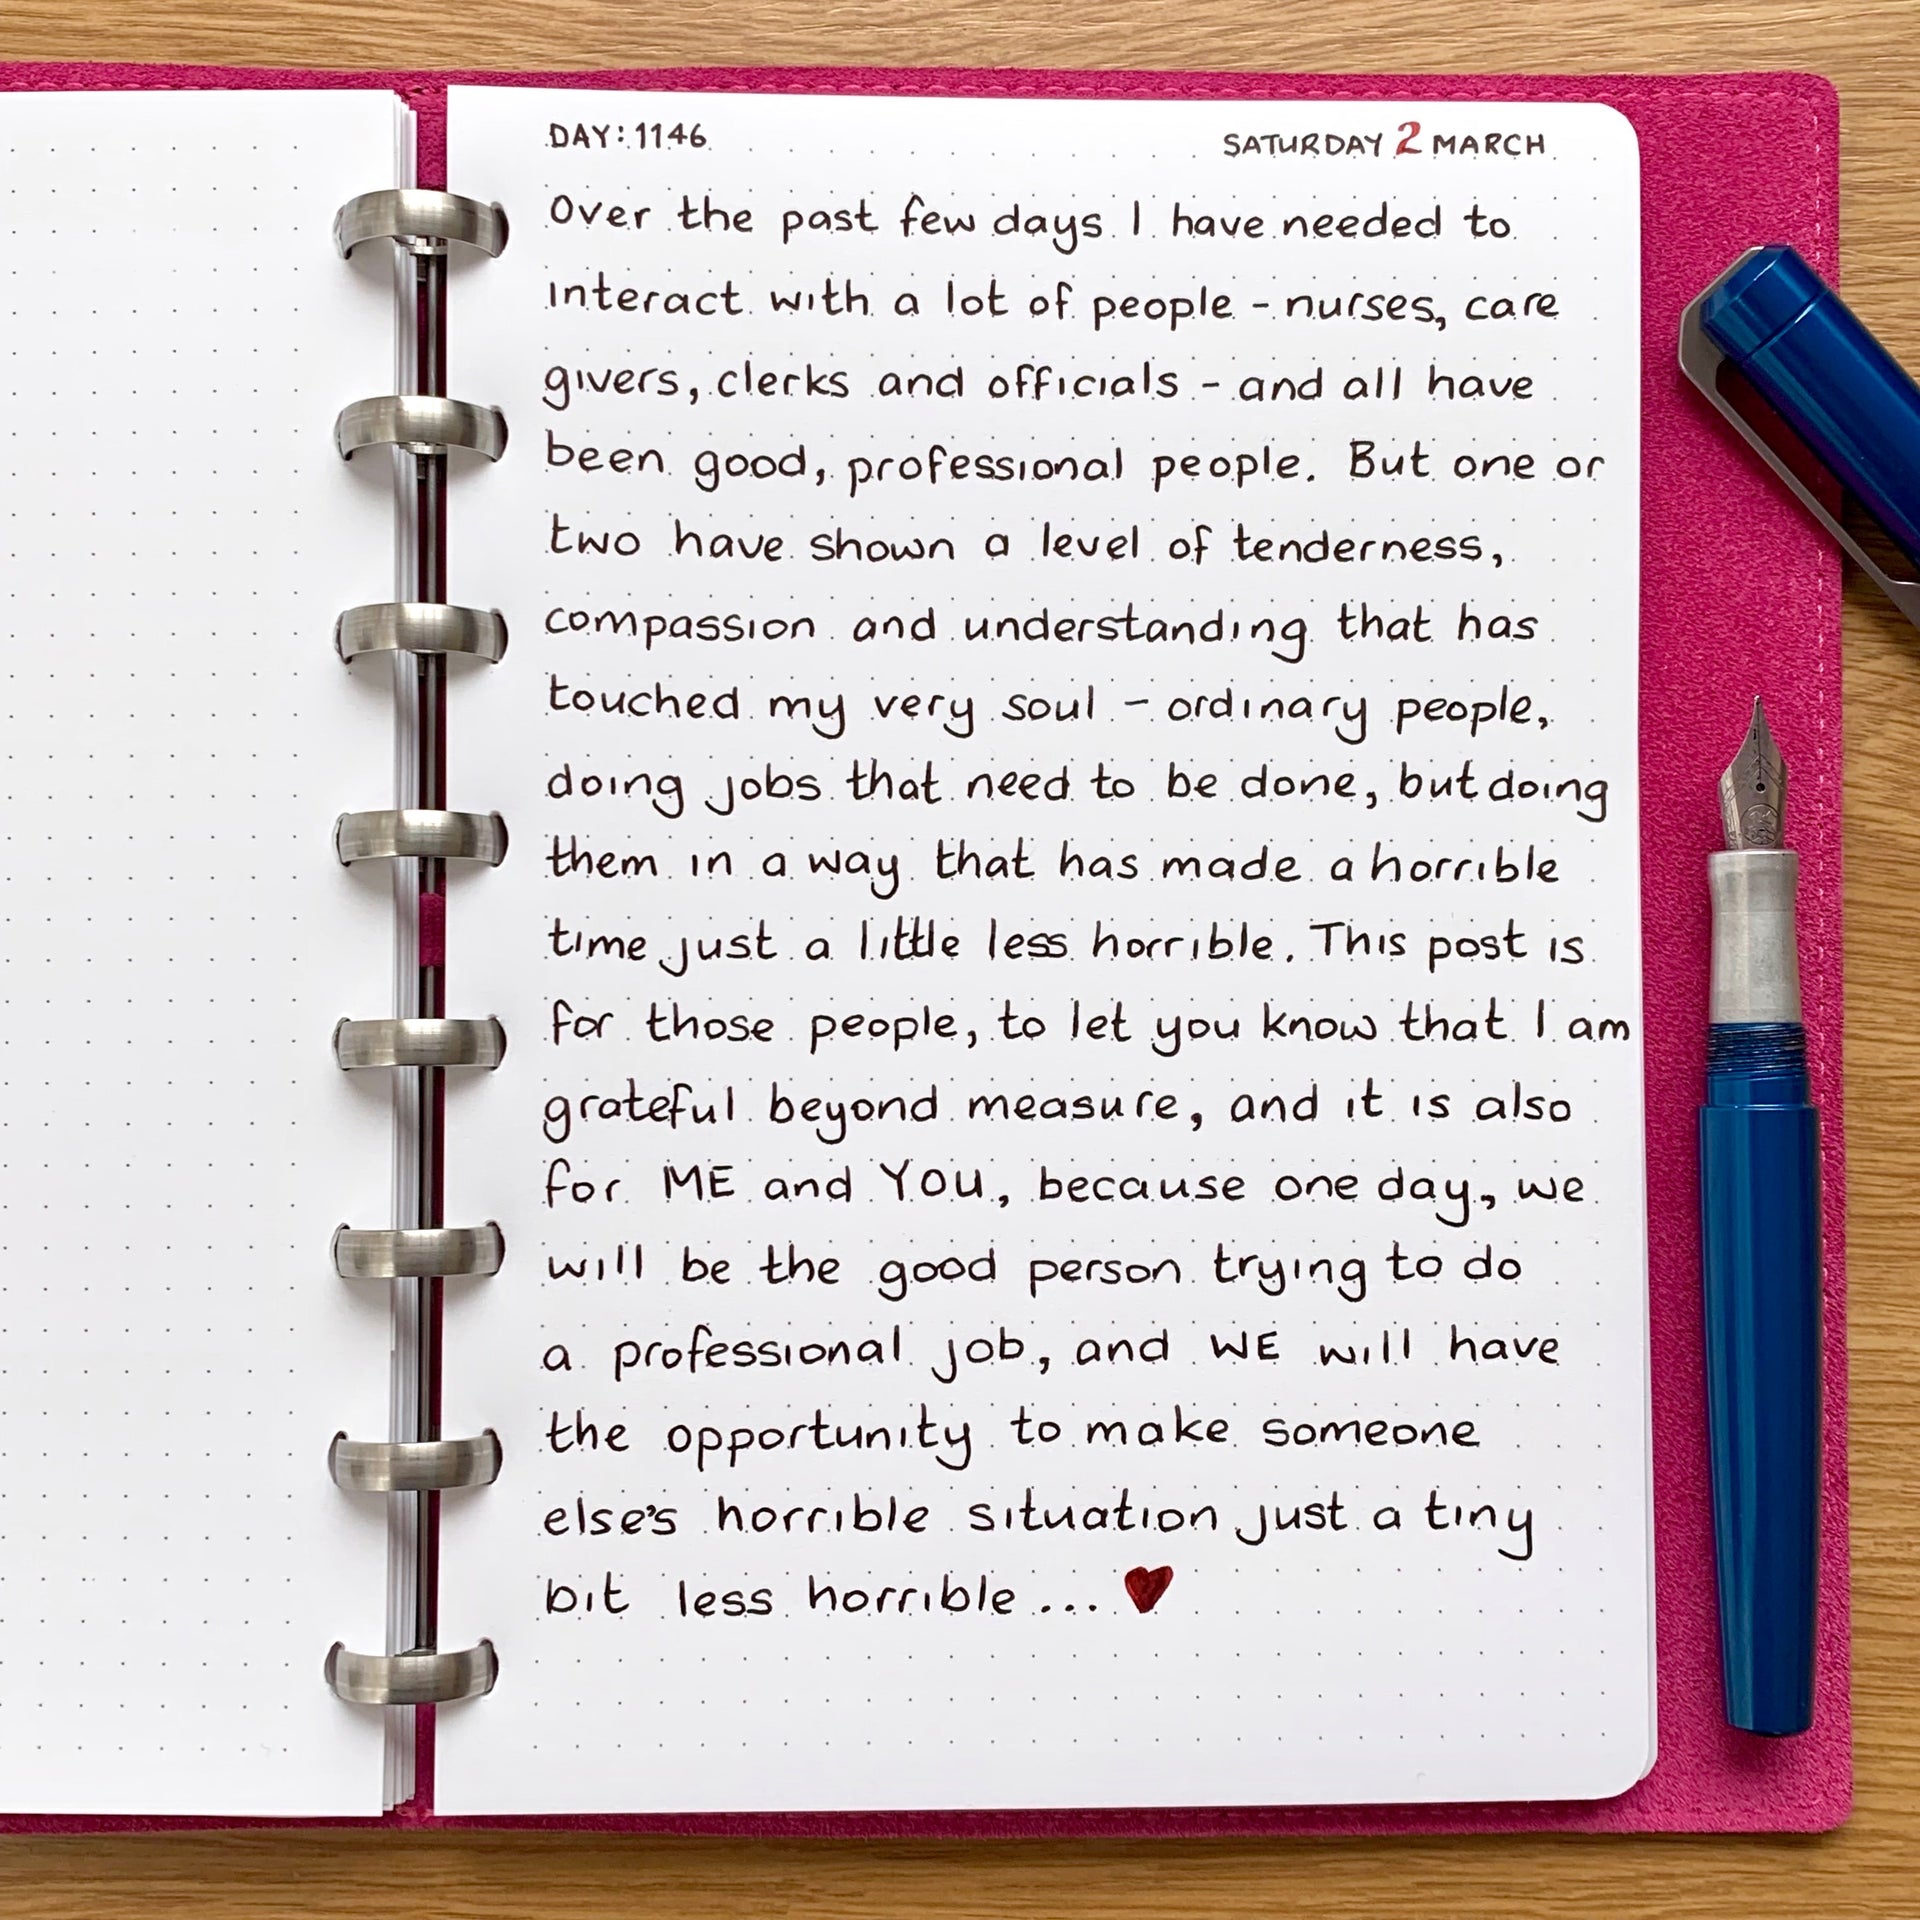 DAY: 1146 SATURDAY 2 MARCH
Over the past few days I have needed to
interact with a lot of people - nurses, care
givers, clerks and officials - and all have
been good, professional people. But one or
two have shown a level of tenderness,
compassion and understanding that has
touched my very soul - ordinary people,
doing jobs that need to be done, but doing
them in a way that has made a horrible
time just a little less horrible. This post is
for those people, to let you know that I am
grateful beyond measure, and it is also
for ME and YOU, because one day, we
will be the good person trying to do
a professional job, and WE will have
the opportunity to make someone
else's horrible situation just a tiny
bit less horrible... ♥